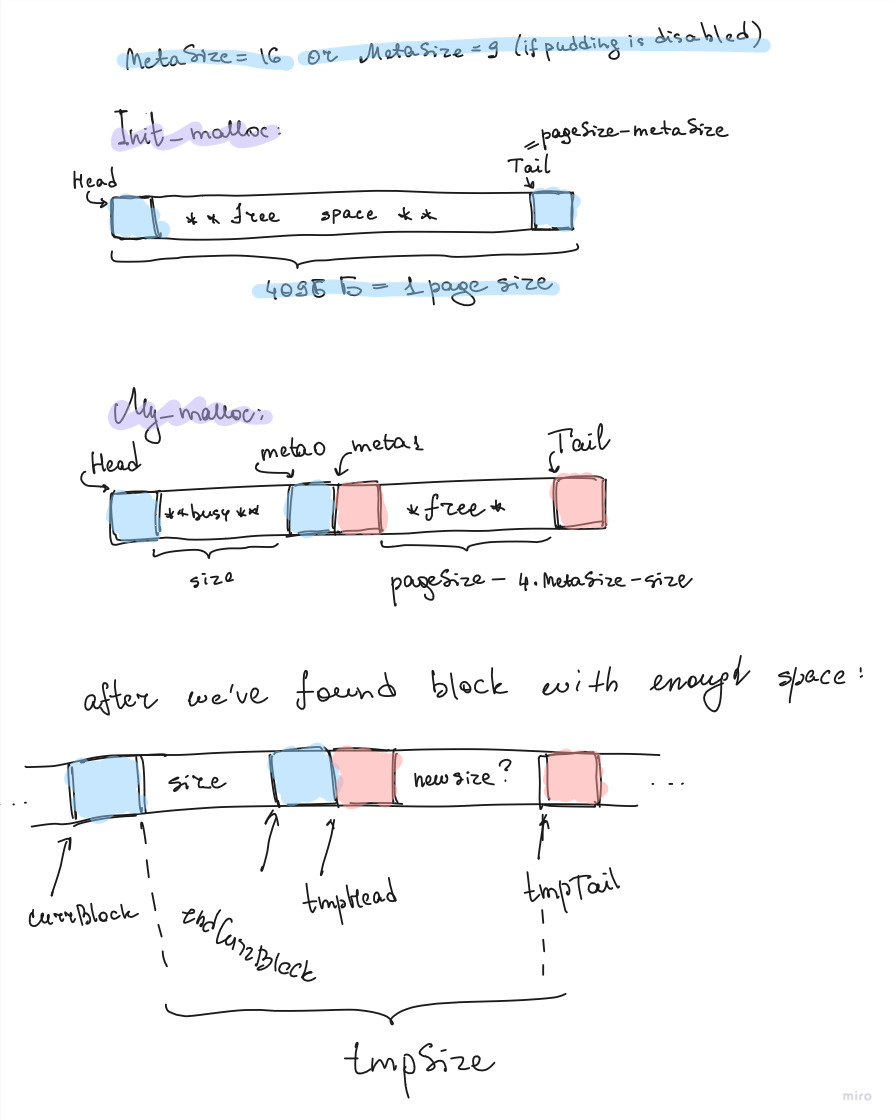 MetaSize = 16 or MetaSize = 9 (if pudding is disabled)
Init_malloc:
= pageSize-metaSize
Head
Tail
* * free space * *
4096 Б = 1 page size
My_malloc:
Head
meta0
meta1
Tail
**busy**
*free*
size
pageSize - 4·MetaSize-size
after we've found block with enougt space:
size
newsize?
...
...
currBlock
endCurrBlock
tmpHead
tmpTail
tmpSize
miro